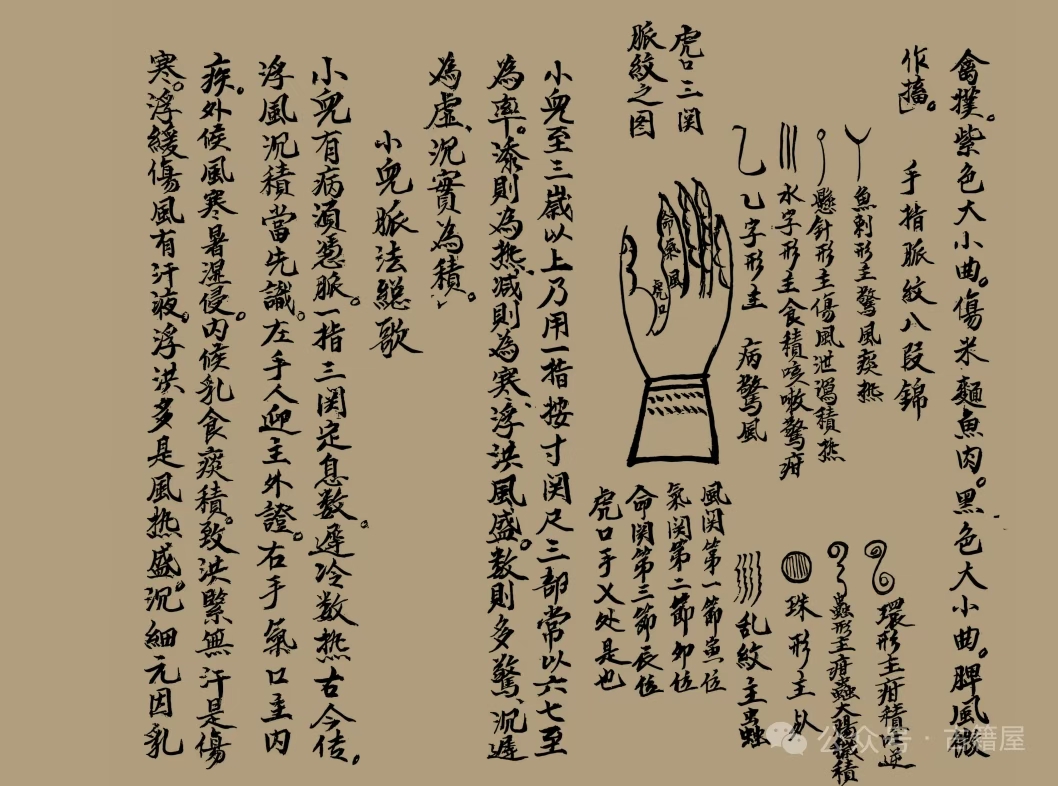 禽撲。紫色大小曲。傷米麵魚肉。黑色大小曲。脾風微
作搐。
手指脈紋八段錦
魚刺形主驚風痰熱
懸針形主傷風泄瀉積熱
水字形主食積咳嗽驚疳
乙字形主 病驚風
環形主疳積吐逆
蟲形主疳蟲大腸穢積
珠形主
乱紋主蟲
虎口三関
脈紋之图
命氣風
虎口
風関第一節寅位
氣関第二節卯位
命関第三節辰位
虎口手乂处是也
小兒至三歲以上乃用一指按寸関尺三部常以六七至
為率。添則為熱减則為寒浮洪風盛。数則多驚、沉遲
為虛、沉實為積。
小兒脈法総歌
小兒有病湏憑脈。一指三関定息数。遲冷数热古今传。
浮風沉積當先識。左手人迎主外證。右手氣口主内
疾。外候風寒暑濕侵。内候乳食痰積。致洪緊無汗是傷
寒。浮緩傷風有汗液。浮洪多是風热盛。沉細元因乳
公众号·古籍屋